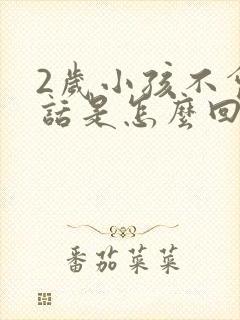 2歲小孩不
話是怎麼回
番茄菜菜